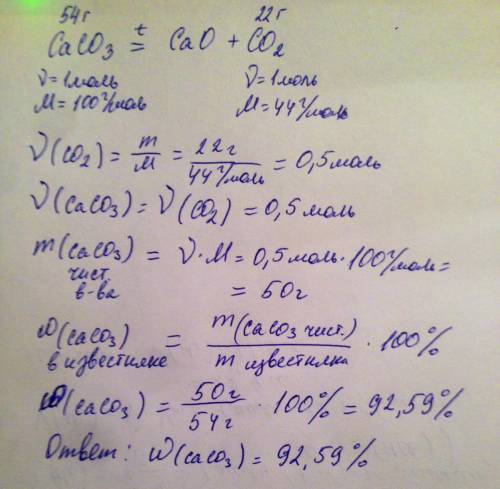 54г 22г
CaCO₃ =ᵗ CaO + CO₂
ν = 1 моль ν = 1 моль
M = 100 г/моль M = 44 г/моль
ν(CO₂) = m/M = 22г/44 г/моль = 0,5 моль
ν(CaCO₃) = ν(CO₂) = 0,5 моль
m(CaCO₃) = ν·M = 0,5 моль·100 г/моль =
чист.
в-ва = 50г
ω(CaCO₃) = m(CaCO₃ чист.)/m известняка · 100%
в известняке
ω(CaCO₃) = 50г/54г · 100% = 92,59%
Ответ: ω(CaCO₃) = 92,59%